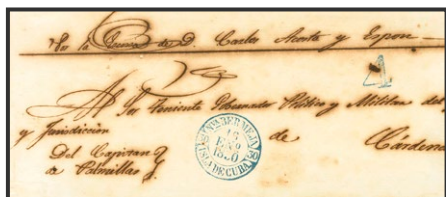 de D. Carlos Acosta y Espon
Al Sor Teniente Gobernador Político y Militar de
y Jurisdicción de Cárdena
Del Capitan
de Palmillas
BERMEJA
ISLA DE CUBA